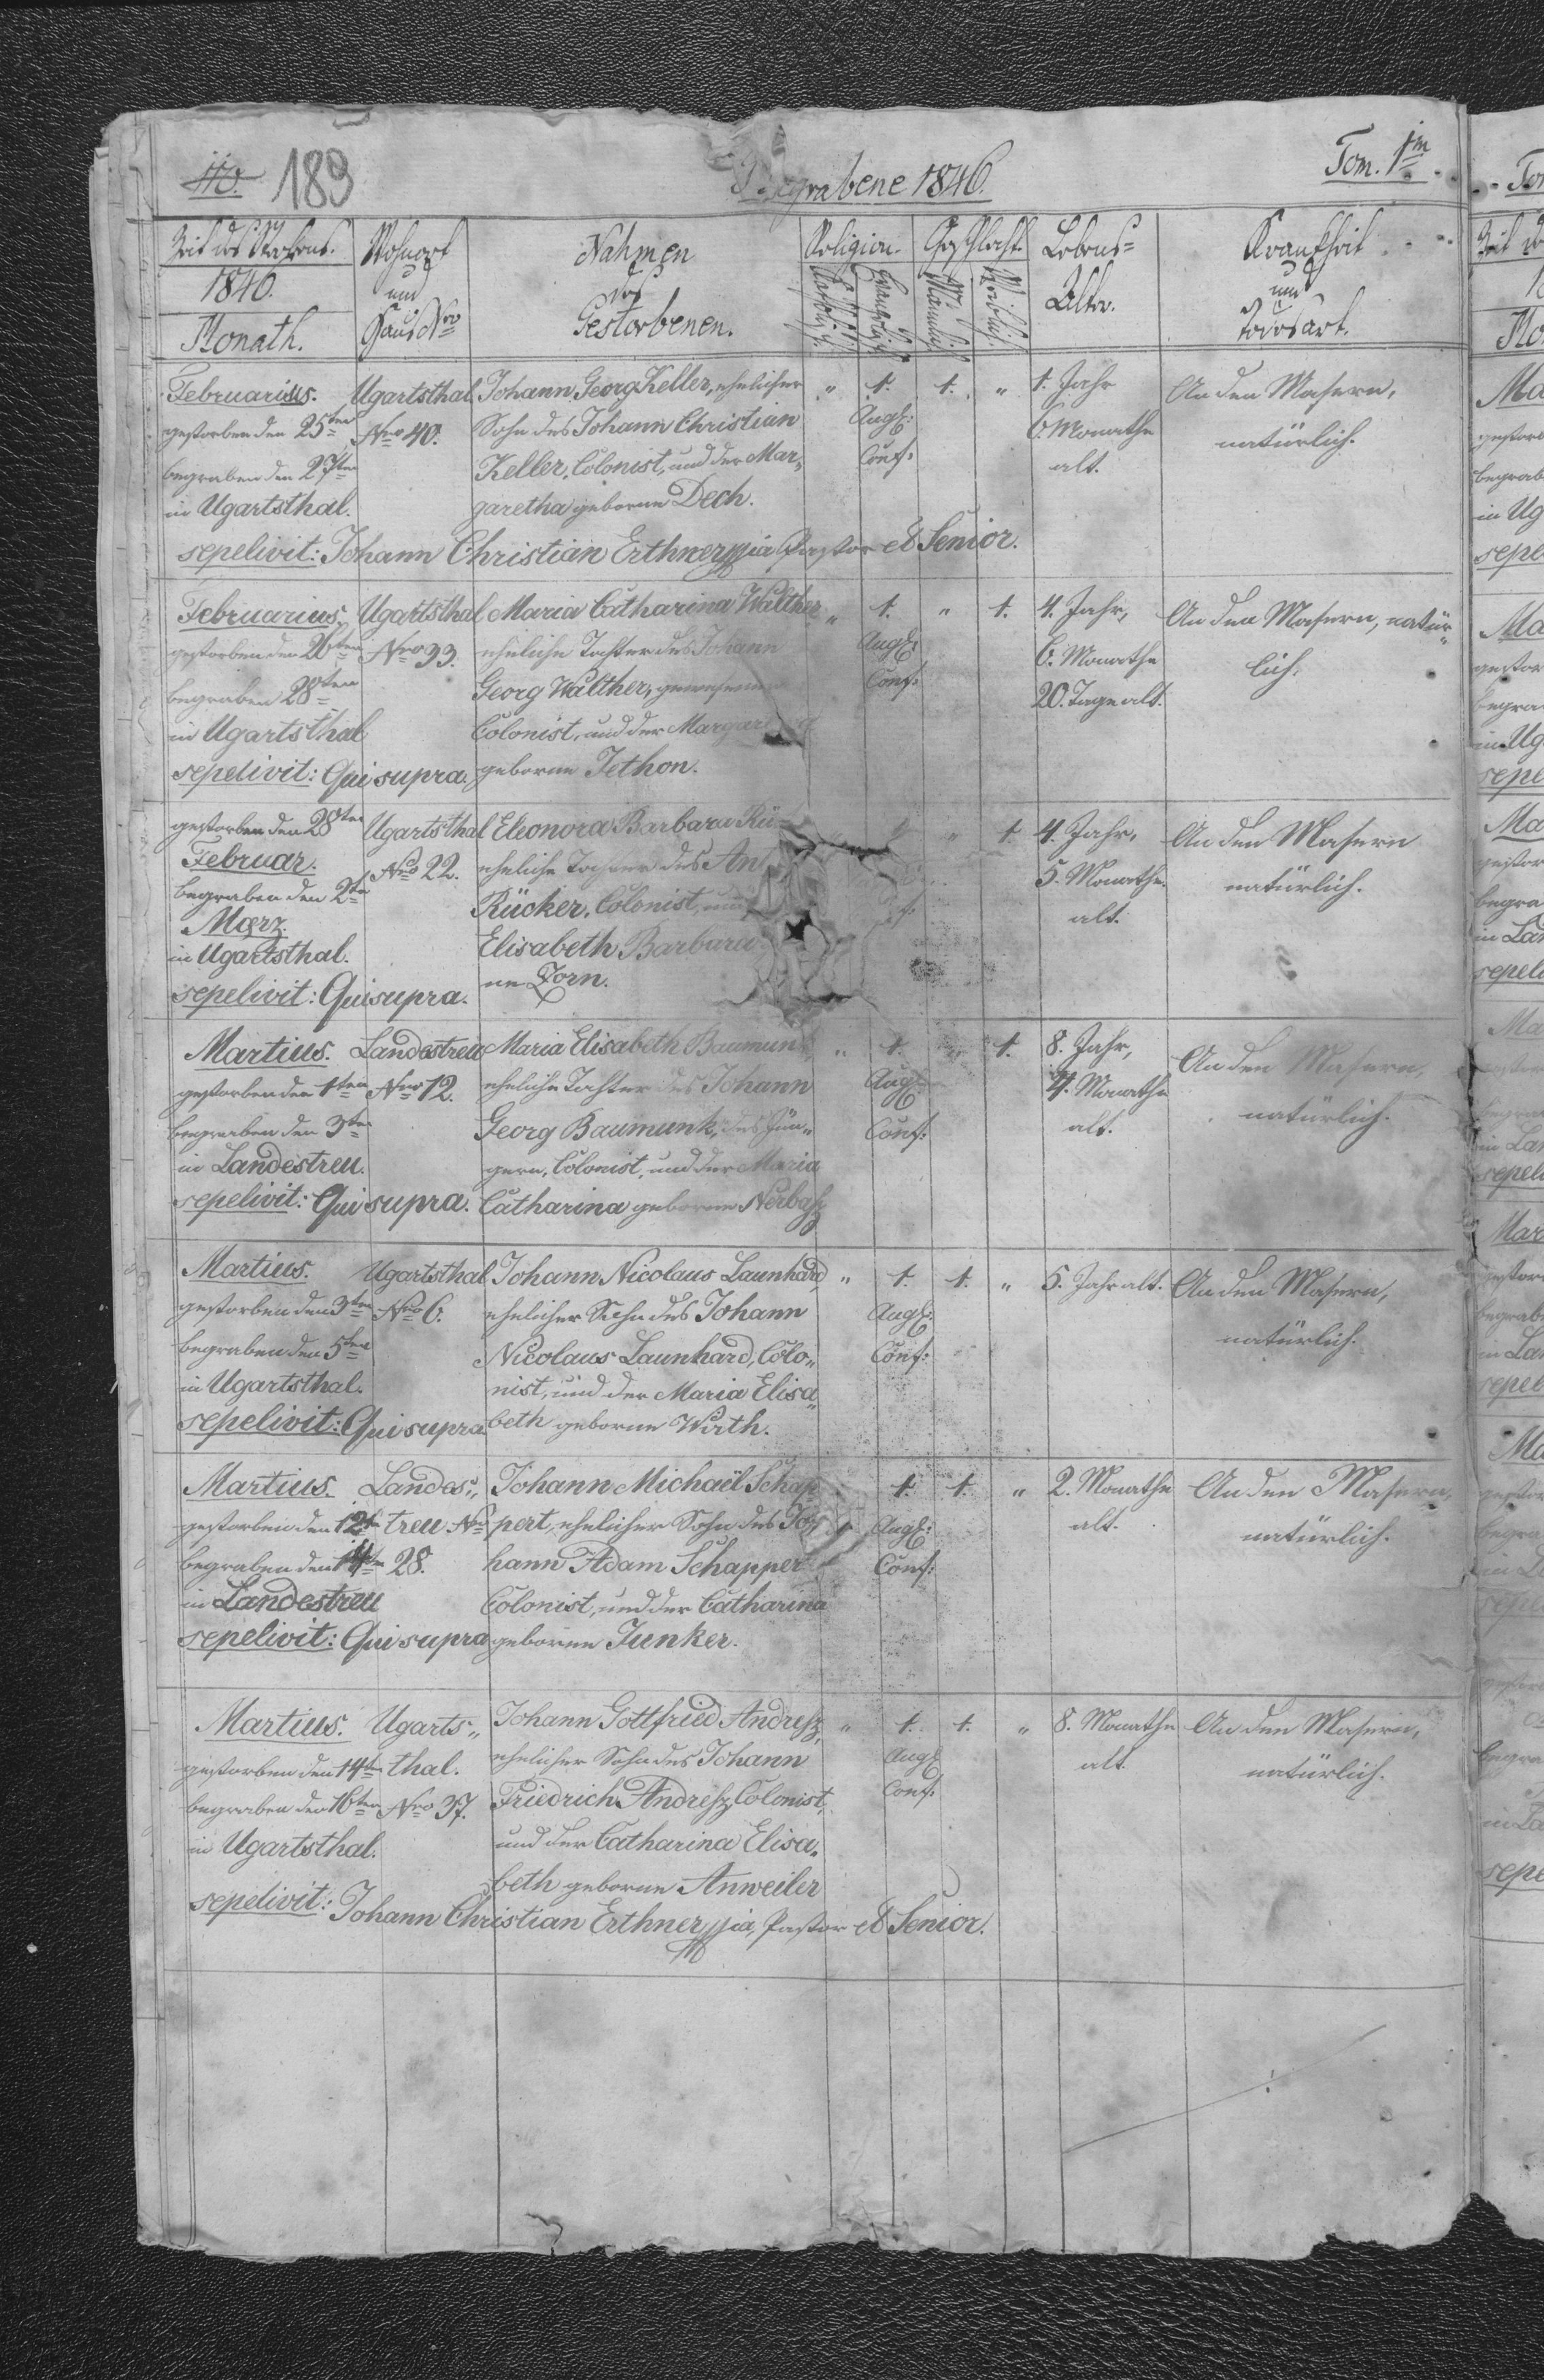 110. 189
Begrabene 1846.
Tom. 1m
Zeit des Sterbens. 1846. Monath.
Wohnort und Haus Nro
Nahmen des Gestorbenen.
Religion. Katholisch Evangelisch
Geschlecht. Männlich Weiblich
Lebens= Alter.
Krankheit und Todesart.
Februarius. Ugartsthal Johann Georg Keller, ehelicher " 1. 1. " 1. Jahr An den Masern,
gestorben den 25ten Nro 40. Sohn des Johann Christian Augs: 6. Monathe natürlich.
begraben den 27ten Keller, Colonist, und der Mar„ Conf: alt.
in Ugartsthal. garetha geborne Dech.
sepelivit: Johann Christian Erthner mpia Pastor et Senior.
Februarius. Ugartsthal Maria Catharina Walther " 1. " 1. 4. Jahr, An den Masern, natür„
gestorben den 26ten Nro 33. eheliche Tochter des Johann Augs: 6. Monathe lich.
begraben 28ten Georg Walther, gewesener Conf: 20. Tage alt.
in Ugartsthal Colonist, und der Margar
sepelivit: Qui supra. geborne Jethon.
gestorben den 28ten Ugartsthal Eleonora Barbara Rü " 1. 4. Jahr, An den Masern
Februar. Nro 22. eheliche Tochter des An 5. Monathe natürlich.
begraben den 2ten Rücker, Colonist, und alt.
Merz. Elisabeth Barbara
in Ugartsthal. ne Zorn.
sepelivit: Qui supra.
Martius. Landestreu Maria Elisabeth Baumunk, " 1. " 1. 8. Jahr, An den Masern,
gestorben den 1ten Nro 12. eheliche Tochter des Johann Augs: 4. Monathe natürlich.
begraben den 3ten Georg Baumunk, des Jün„ Conf: alt.
in Landestreu. gern, Colonist, und der Maria
sepelivit: Qui supra. Catharina geborne Nerbasz
Martius. Ugartsthal Johann Nicolaus Launhard, " 1. 1. " 5. Jahr alt. An den Masern,
gestorben den 3ten Nro 6. ehelicher Sohn des Johann Augs: natürlich.
begraben den 5ten Nicolaus Launhard, Colo„ Conf:
in Ugartsthal. nist, und der Maria Elisa„
sepelivit: Qui supra beth geborne Wirth.
Martius. Landes„ Johann Michaël Schap 1. 1. " 2. Monathe An den Masern,
gestorben den 12t treu Nro pert, ehelicher Sohn des Jo Augs: alt. natürlich.
begraben den 14ten 28. hann Adam Schapper Conf:
in Landestreu Colonist, und der Catharina
sepelivit: Qui supra geborne Junker.
Martius. Ugarts„ Johann Gottfried Andresz, " 1. 1. " 8. Monathe An den Masern,
gestorben den 14t thal. ehelicher Sohn des Johann Augs alt. natürlich.
begraben den 16ten Nro 37. Friedrich Andresz, Colonist, Conf:
in Ugartsthal. und der Catharina Elisa„
beth geborne Anweiler
sepelivit: Johann Christian Erthner mpia, Pastor et Senior.